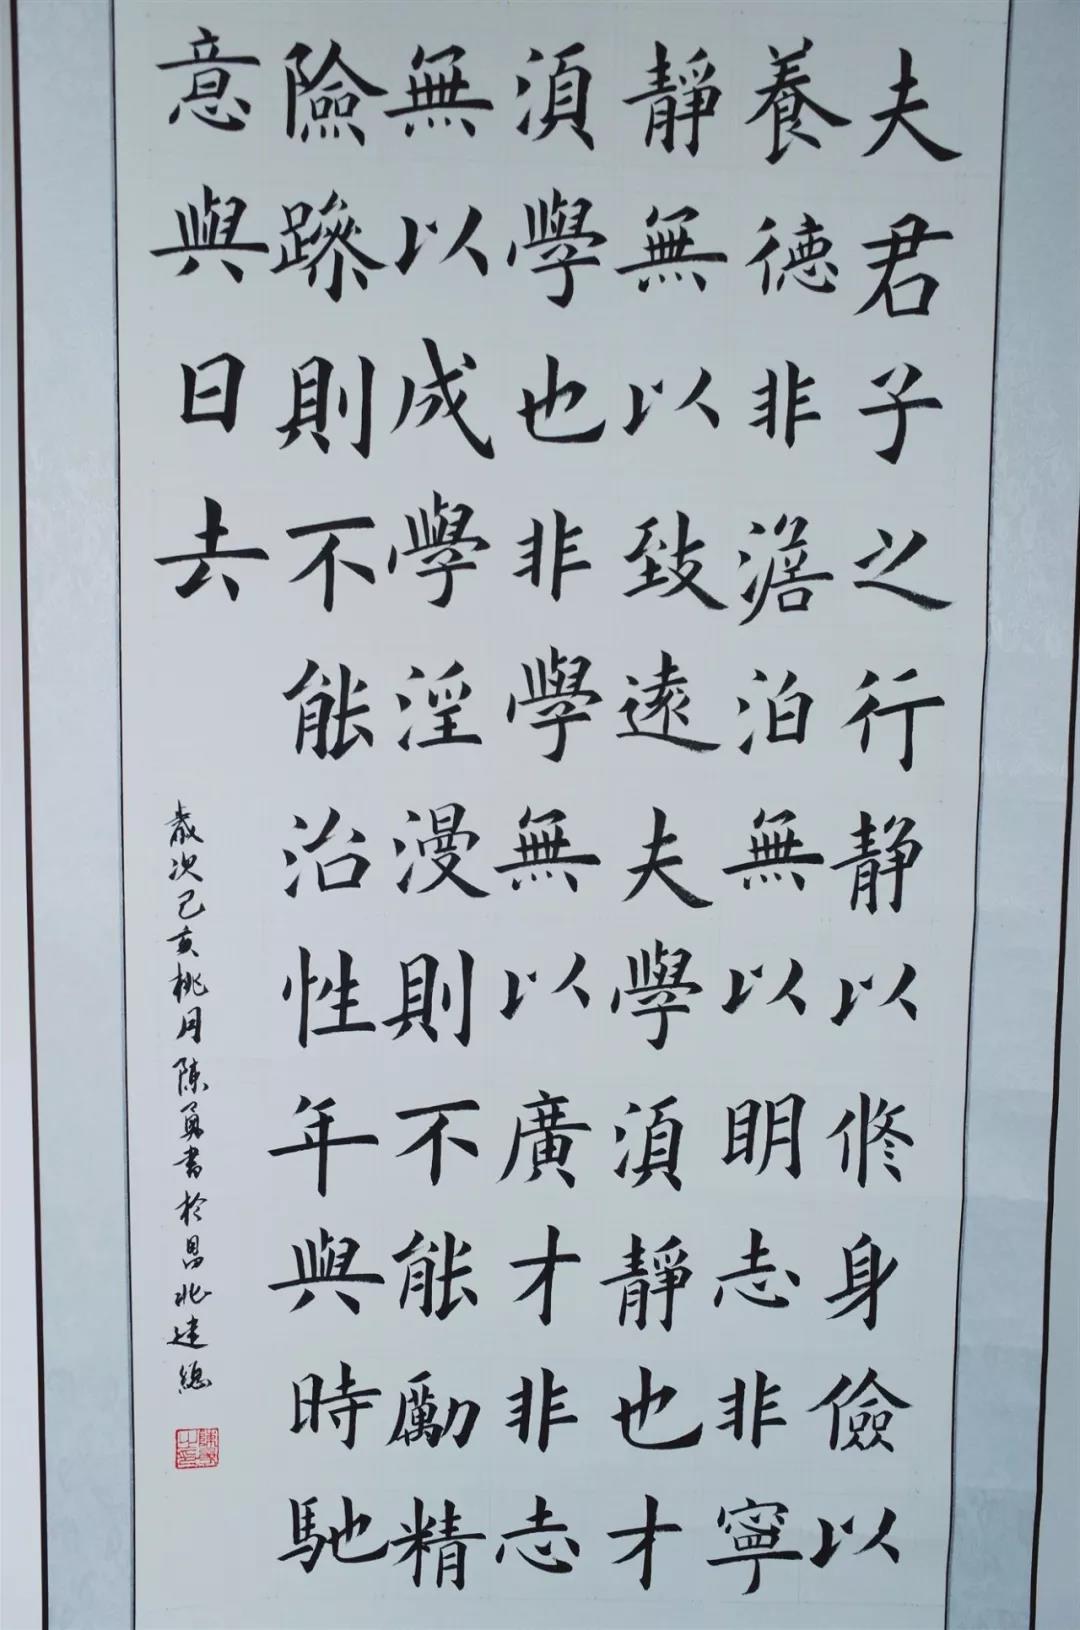 夫君子之行静以修身儉以
養德非澹泊無以明志非寧
靜無以致遠夫學須靜也才
須學也非學無以廣才非志
無以成學淫漫則不能勵精
險躁則不能治性年與時馳
意與日去
歲次己亥桃月陳勇書於昌北建總